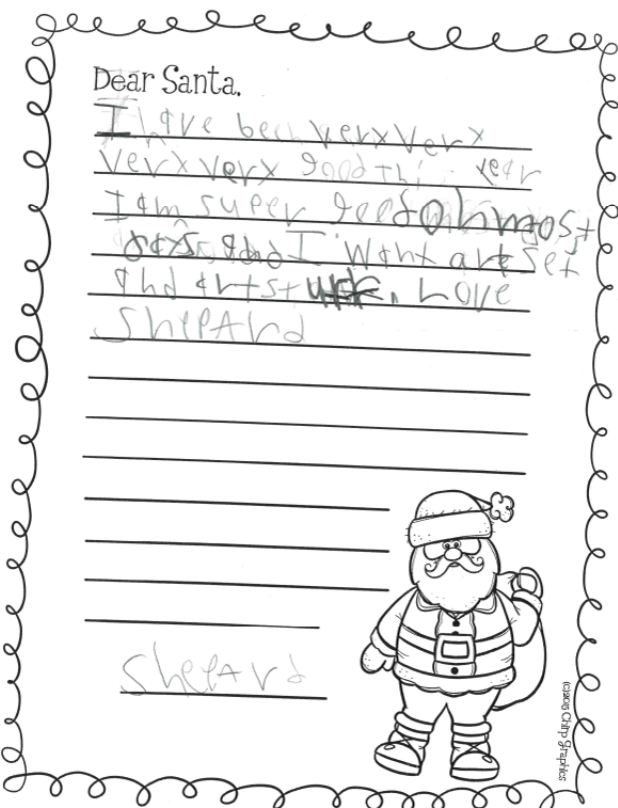 Dear Santa,
I have been verx verx
verx verx good thi year
I am super good ohn most
daxs and I want art set
and artst. Love
Shepard
Shepard
(c)2015 Chirp Graphics